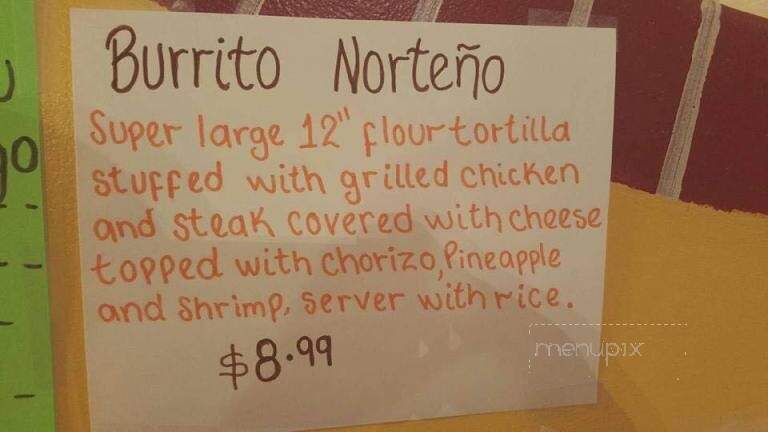 Burrito Norteño
Super large 12" flour tortilla
stuffed with grilled chicken
and steak covered with cheese
topped with chorizo, Pineapple
and shrimp, server with rice.
$8.99
menupix